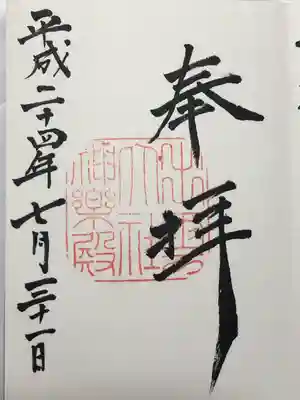 奉拝
出雲
大社
神樂殿
平成二十四年七月三十一日